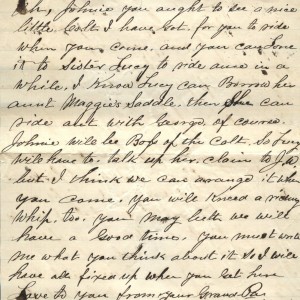 Oh, Johnie you aught to see a nice
little Colt I have Got. for you to ride
when you come. and you can lone
it to Sister Lucy to ride once in a
while. I know Lucy can Borrow her
aunt Maggie's Saddle, then She can
ride out with George of course.
Johnie will be Boss of the Colt. So Lucy
will have to talk up her claim to J.
but I think we can arrange it when
you come. You will kneed a riding
Whip too. you May beth we will
have a Good time. you must write
me what you think about it so I will
have all fixed up when you Get here
Love to you from your Grand Pa